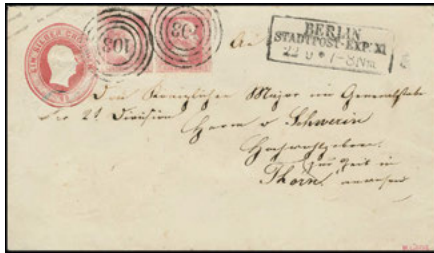 EIN SILBER GROSCHEN
103
103
An
BERLIN
STADTPOST-EXP: XI
22 7-8
Den Königlichen Major im Generalstabe
der 2t Division
Herrn v Schwerin
Hochwohlgeboren
zur Zeit in
Thorn